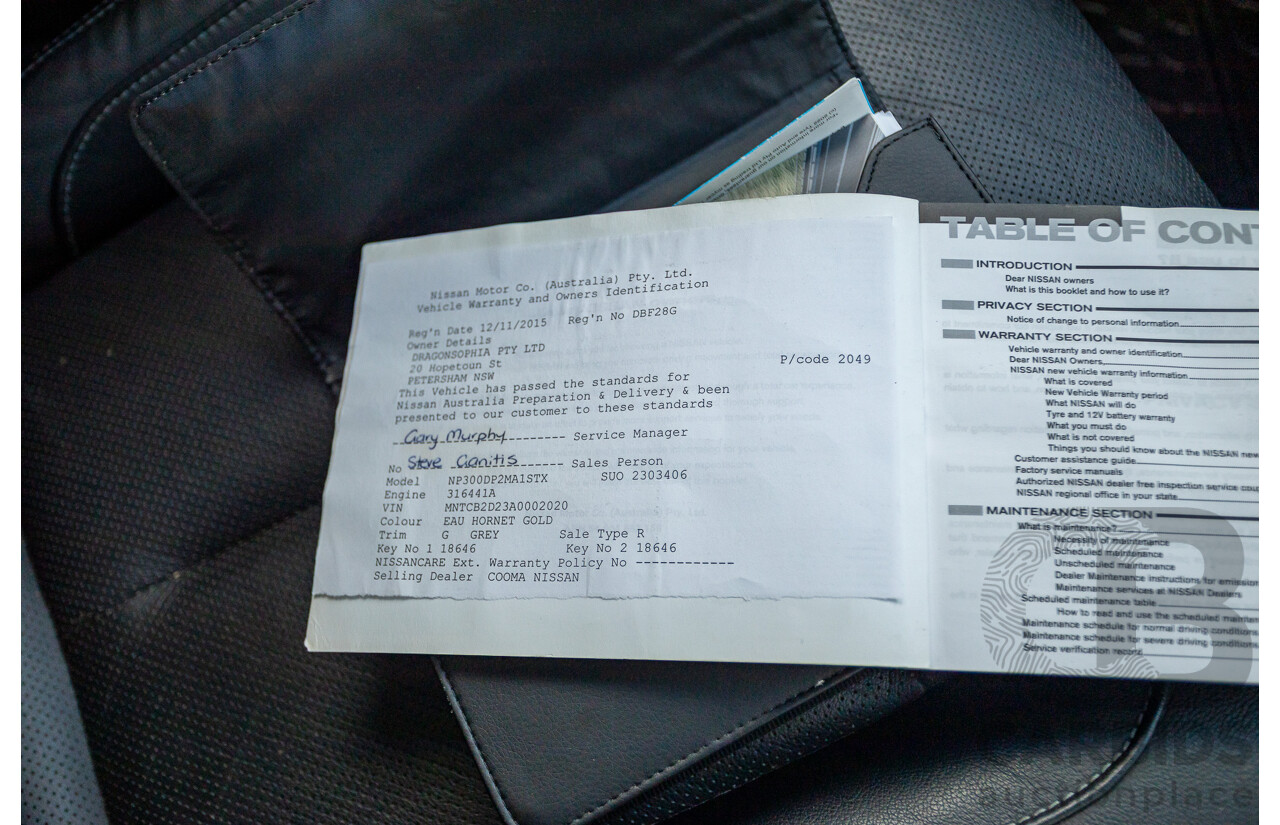 Nissan Motor Co. (Australia) Pty. Ltd.
Vehicle Warranty and Owners Identification
Reg'n Date 12/11/2015 Reg'n No DBF28G
Owner Details
DRAGONSOPHIA PTY LTD
20 Hopetoun St
PETERSHAM NSW P/code 2049
This Vehicle has passed the standards for
Nissan Australia Preparation & Delivery & been
presented to our customer to these standards
Gary Murphy ------- Service Manager
No Steve Ganitis ------ Sales Person
Model NP300DP2MA1STX SUO 2303406
Engine 316441A
VIN MNTCB2D23A0002020
Colour EAU HORNET GOLD
Trim G GREY Sale Type R
Key No 1 18646 Key No 2 18646
NISSANCARE Ext. Warranty Policy No ------------
Selling Dealer COOMA NISSAN
TABLE OF CONT
INTRODUCTION
Dear NISSAN owners
What is this booklet and how to use it?
PRIVACY SECTION
Notice of change to personal information
WARRANTY SECTION
Vehicle warranty and owner identification
Dear NISSAN Owners
NISSAN new vehicle warranty information
What is covered
New Vehicle Warranty period
What NISSAN will do
Tyre and 12V battery warranty
What you must do
What is not covered
Things you should know about the NISSAN new
Customer assistance guide
Factory service manuals
Authorized NISSAN dealer free inspection service cou
NISSAN regional office in your state
MAINTENANCE SECTION
What is maintenance?
Necessity of maintenance
Scheduled maintenance
Unscheduled maintenance
Dealer Maintenance instructions for emission
Maintenance services at NISSAN Dealers
Scheduled maintenance table
How to read and use the scheduled mainten
Maintenance schedule for normal driving conditions
Maintenance schedule for severe driving conditions
Service verification record